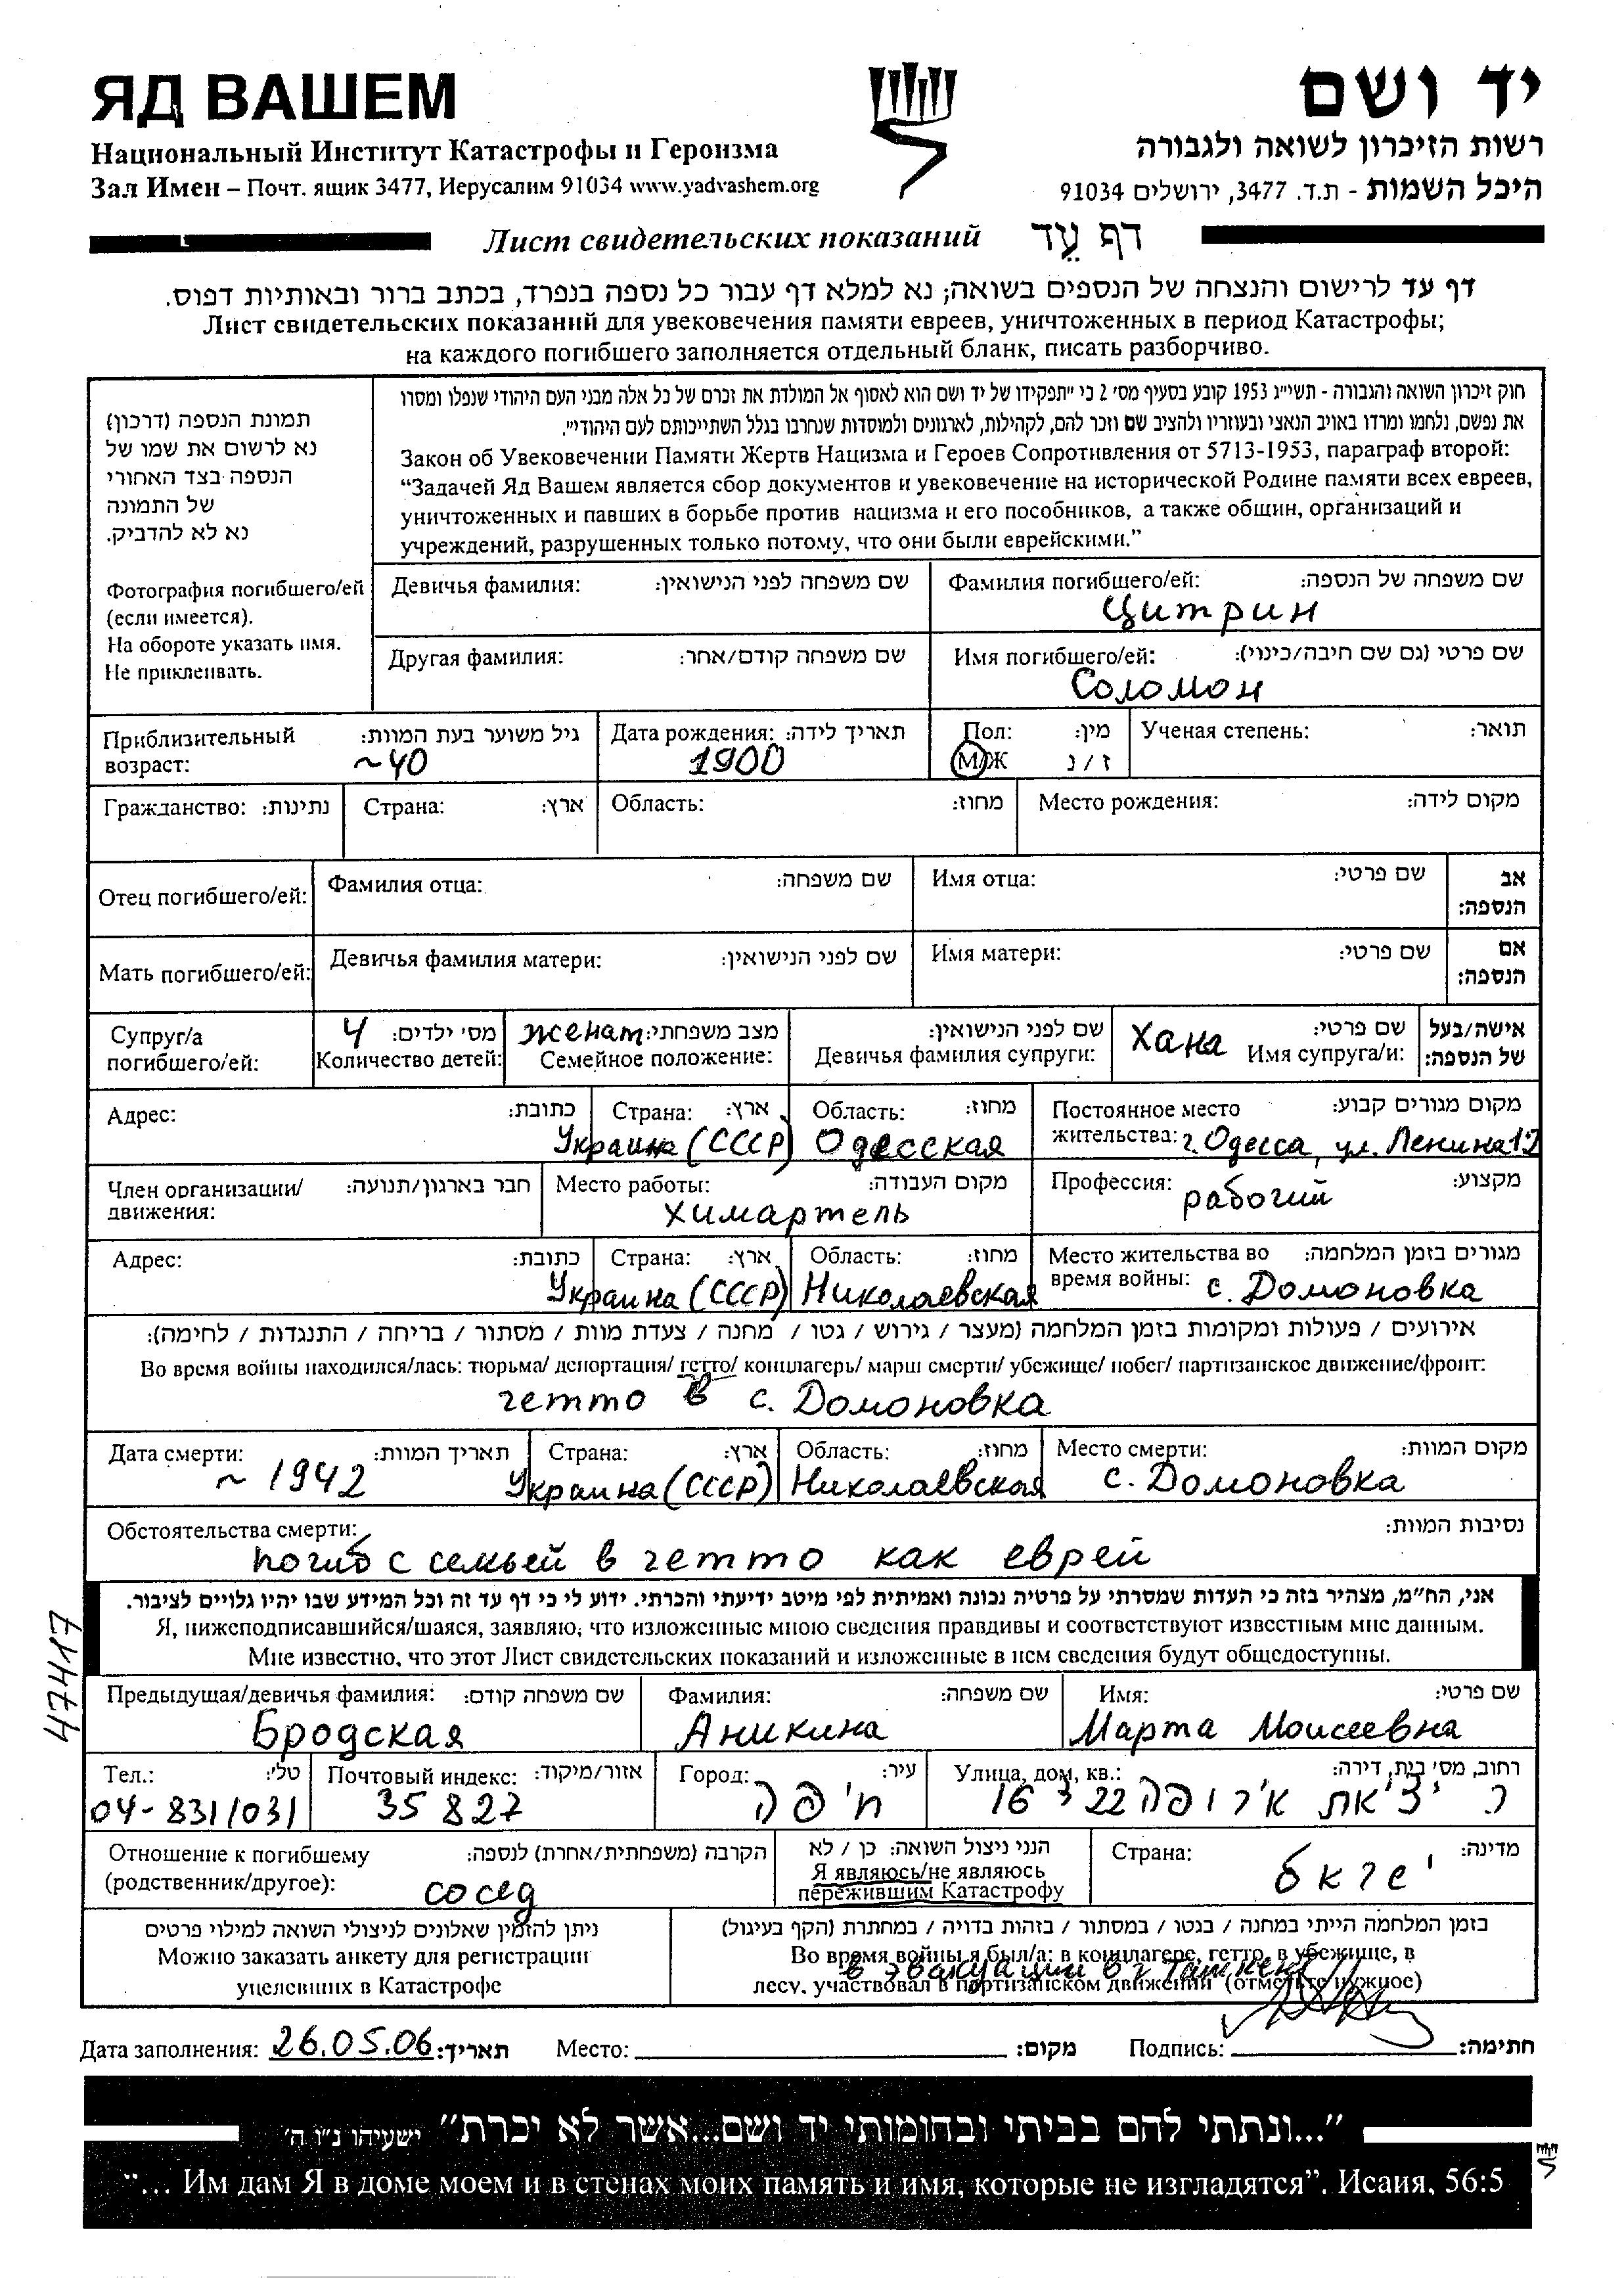 ЯД ВАШЕМ
Национальный Институт Катастрофы и Героизма
Зал Имен – Почт. ящик 3477, Иерусалим 91034 www.yadvashem.org
יד ושם
רשות הזיכרון לשואה ולגבורה
היכל השמות - ת.ד. 3477, ירושלים 91034
Лист свидетельских показаний דף עֵד
דף עד לרישום והנצחה של הנספים בשואה; נא למלא דף עבור כל נספה בנפרד, בכתב ברור ובאותיות דפוס.
Лист свидетельских показаний для увековечения памяти евреев, уничтоженных в период Катастрофы;
на каждого погибшего заполняется отдельный бланк, писать разборчиво.
תמונת הנספה (דרכון)
נא לרשום את שמו של
הנספה בצד האחורי
של התמונה
נא לא להדביק.
Фотография погибшего/ей
(если имеется).
На обороте указать имя.
Не приклеивать.
חוק זיכרון השואה והגבורה - תשי״ג 1953 קובע בסעיף מס' 2 כי ״תפקידו של יד ושם הוא לאסוף אל המולדת את זכרם של כל אלה מבני העם היהודי שנפלו ומסרו
את נפשם, נלחמו ומרדו באויב הנאצי ובעוזריו ולהציב שם וזכר להם, לקהילות, לארגונים ולמוסדות שנחרבו בגלל השתייכותם לעם היהודי״.
Закон об Увековечении Памяти Жертв Нацизма и Героев Сопротивления от 5713-1953, параграф второй:
“Задачей Яд Вашем является сбор документов и увековечение на исторической Родине памяти всех евреев,
уничтоженных и павших в борьбе против нацизма и его пособников, а также общин, организаций и
учреждений, разрушенных только потому, что они были еврейскими.”
Девичья фамилия: שם משפחה לפני הנישואין:
Фамилия погибшего/ей: שם משפחה של הנספה:
Цитрин
Другая фамилия: שם משפחה קודם/אחר:
Имя погибшего/ей: שם פרטי (גם שם חיבה/כינוי):
Соломон
Приблизительный возраст: גיל משוער בעת המוות:
~40
Дата рождения: תאריך לידה:
1900
Пол: מין:
М/Ж ז / נ
Ученая степень: תואר:
Гражданство: נתינות:
Страна: ארץ:
Область: מחוז:
Место рождения: מקום לידה:
Отец погибшего/ей:
Фамилия отца: שם משפחה:
Имя отца: שם פרטי:
אב הנספה:
Мать погибшего/ей:
Девичья фамилия матери: שם לפני הנישואין:
Имя матери: שם פרטי:
אם הנספה:
Супруг/а погибшего/ей:
4 מס' ילדים:
Количество детей:
женат מצב משפחתי:
Семейное положение:
שם לפני הנישואין:
Девичья фамилия супруги:
Хана שם פרטי:
Имя супруга/и:
אישה/בעל של הנספה:
Адрес: כתובת:
Страна: ארץ:
Украина (СССР)
Область: מחוז:
Одесская
Постоянное место жительства: מקום מגורים קבוע:
г. Одесса, ул. Ленина 12
Член организации/ движения: חבר בארגון/תנועה:
Место работы: מקום העבודה:
химартель
Профессия: מקצוע:
рабочий
Адрес: כתובת:
Страна: ארץ:
Украина (СССР)
Область: מחוז:
Николаевская
Место жительства во время войны: מגורים בזמן המלחמה:
с. Домоновка
אירועים / פעולות ומקומות בזמן המלחמה (מעצר / גירוש / גטו / מחנה / צעדת מוות / מסתור / בריחה / התנגדות / לחימה):
Во время войны находился/лась: тюрьма/ депортация/ гетто/ концлагерь/ марш смерти/ убежище/ побег/ партизанское движение/фронт:
гетто в с. Домоновка
Дата смерти: תאריך המוות:
~ 1942
Страна: ארץ:
Украина (СССР)
Область: מחוז:
Николаевская
Место смерти: מקום המוות:
с. Домоновка
Обстоятельства смерти: נסיבות המוות:
погиб с семьей в гетто как еврей
אני, הח״מ, מצהיר בזה כי העדות שמסרתי על פרטיה נכונה ואמיתית לפי מיטב ידיעתי והכרתי. ידוע לי כי דף עד זה וכל המידע שבו יהיו גלויים לציבור.
Я, нижеподписавшийся/шаяся, заявляю, что изложенные мною сведения правдивы и соответствуют известным мне данным.
Мне известно, что этот Лист свидетельских показаний и изложенные в нем сведения будут общедоступны.
47417
Предыдущая/девичья фамилия: שם משפחה קודם:
Бродская
Фамилия: שם משפחה:
Аникина
Имя: שם פרטי:
Марта Моисеевна
Тел.: טל':
04-8311031
Почтовый индекс: אזור/מיקוד:
35827
Город: עיר:
חיפה
Улица, дом, кв.: רחוב, מס' בית, דירה:
ר. יציאת אירופה 22 ד 16
Отношение к погибшему (родственник/другое): הקרבה (משפחתית/אחרת) לנספה:
сосед
הנני ניצול השואה: כן / לא
Я являюсь/не являюсь
пережившим Катастрофу
Страна: מדינה:
ניתן להזמין שאלונים לניצולי השואה למילוי פרטים
Можно заказать анкету для регистрации
уцелевших в Катастрофе
בזמן המלחמה הייתי במחנה / בגטו / במסתור / בזהות בדויה / במחתרת (הקף בעיגול)
Во время войны я был/а: в концлагере, гетто, в убежище, в
лесу, участвовал в партизанском движении (отметьте нужное)
в эвакуации в г. Ташкент
Дата заполнения: 26.05.06 תאריך:
Место: מקום:
Подпись: חתימה:
״...ונתתי להם בביתי ובחומותי יד ושם...אשר לא יכרת״ ישעיהו נ״ו ה'
“... Им дам Я в доме моем и в стенах моих память и имя, которые не изгладятся”. Исаия, 56:5